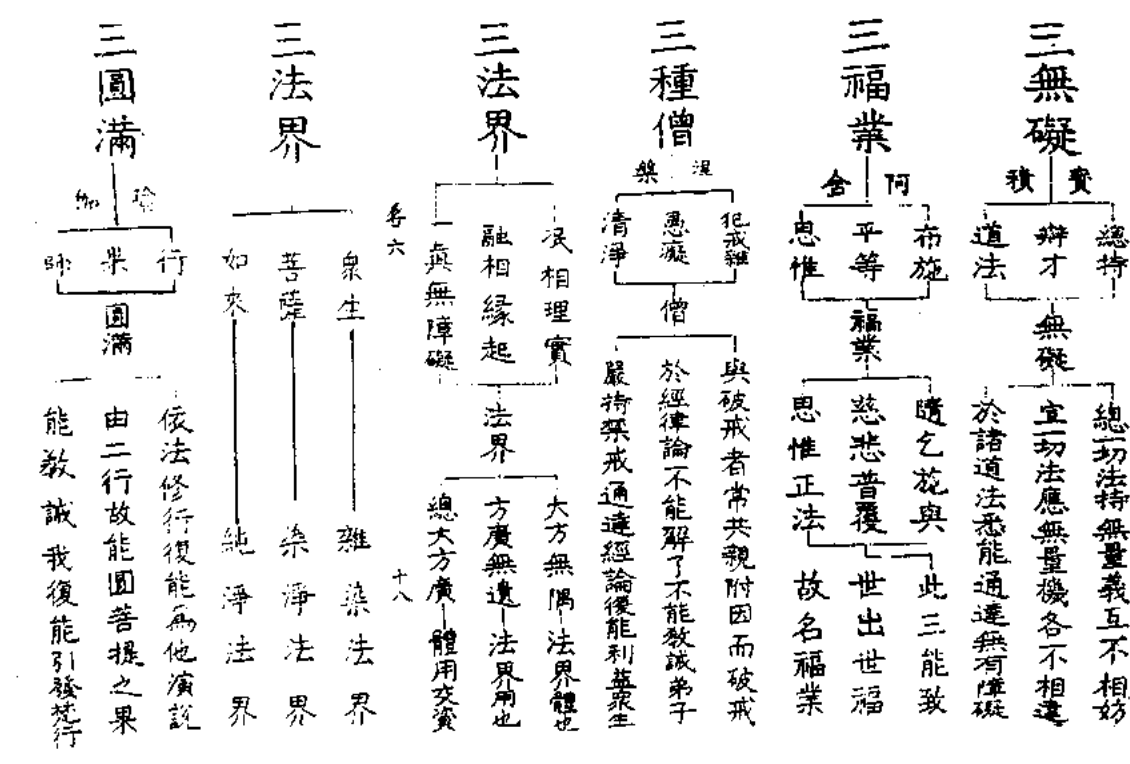 三無礙
寶積
總持
辯才
道法
無礙
總一切法持無量義互不相妨
宣一切法應無量機各不相違
於諸道法悉能通達無有障礙
三福業
阿含
布施
平等
思惟
福業
隨乞施與
慈悲普覆
思惟正法
此三能致
世出世福
故名福業
三種僧
涅槃
犯戒雜
愚癡
清淨
僧
與破戒者常共親附因而破戒
於經律論不能解了不能教誡弟子
嚴持禁戒通達經論復能利益衆生
三法界
泯相理實
融相緣起
無障礙
法界
大方無隅法界體也
方廣無遺法界用也
總大方廣體用交資
卷六
十八
三法界
衆生
菩薩
如來
雜染法界
染淨法界
純淨法界
三圓滿
瑜伽
行
果
師
圓滿
依法修行復能為他演說
由二行故能圓菩提之果
能教誡我復能引發梵行